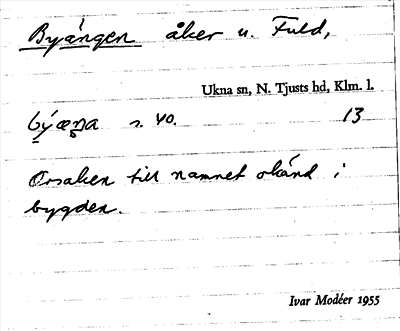 Byängen åker u. Fuld,
Ukna sn, N. Tjusts hd, Klm. l.
býæŋa s. 40. 13
Orsaken till namnet okänd i
bygden.
Ivar Modéer 1955